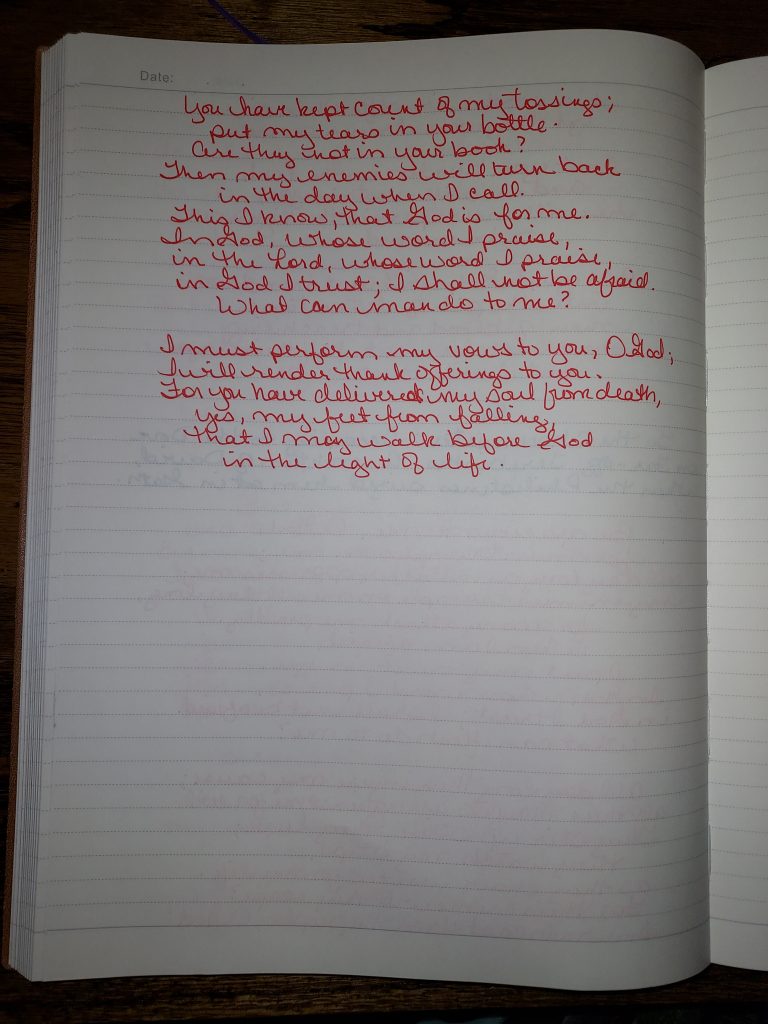 Date:
You have kept count of my tossings;
put my tears in your bottle.
Are they not in your book?
Then my enemies will turn back
in the day when I call.
This I know, that God is for me.
In God, whose word I praise,
in the Lord, whose word I praise,
in God I trust; I shall not be afraid.
What can man do to me?
I must perform my vows to you, O God;
I will render thank offerings to you.
For you have delivered my soul from death,
yes, my feet from falling,
that I may walk before God
in the light of life.